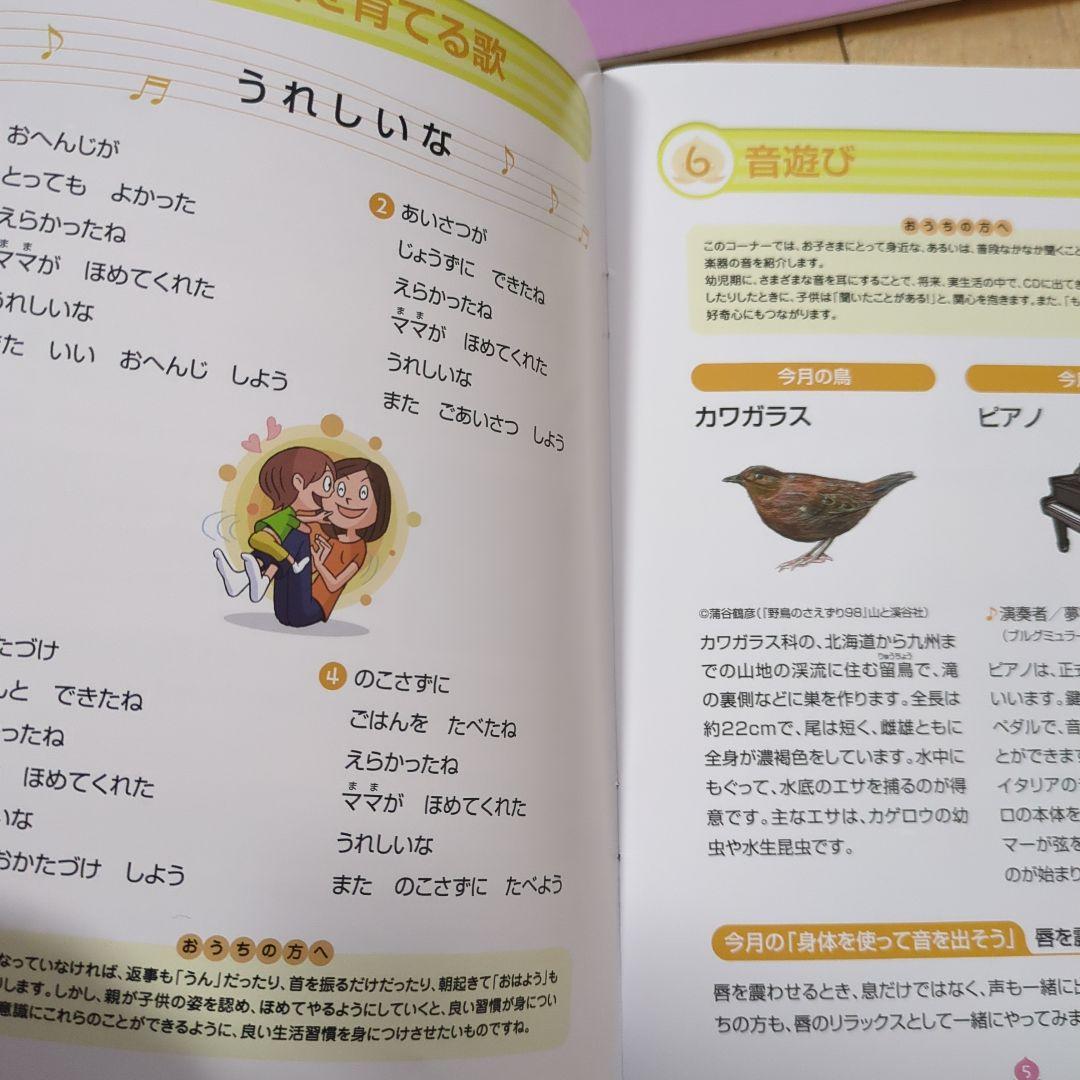 を育てる歌
うれしいな
おへんじが
とっても よかった
えらかったね
まま
ママが ほめてくれた
うれしいな
いい おへんじ しよう
2 あいさつが
じょうずに できたね
えらかったね
まま
ママが ほめてくれた
うれしいな
また ごあいさつ しよう
たづけ
んと できたね
ったね
ほめてくれた
いな
おかたづけ しよう
4 のこさずに
ごはんを たべたね
えらかったね
まま
ママが ほめてくれた
うれしいな
また のこさずに たべよう
おうちの方へ
なっていなければ、返事も「うん」だったり、首を振るだけだったり、朝起きて「おはよう」も
します。しかし、親が子供の姿を認め、ほめてやるようにしていくと、良い習慣が身につい
意識にこれらのことができるように、良い生活習慣を身につけさせたいものですね。
6 音遊び
おうちの方へ
このコーナーでは、お子さまにとって身近な、あるいは、普段なかなか聞くこと
楽器の音を紹介します。
幼児期に、さまざまな音を耳にすることで、将来、実生活の中で、CDに出てき
したりしたときに、子供は「聞いたことがある!」と、関心を抱きます。また、「も
好奇心にもつながります。
今月の鳥
カワガラス
©蒲谷鶴彦(「野鳥のさえずり98」山と溪谷社)
カワガラス科の、北海道から九州ま
りゅうちょう
での山地の渓流に住む留鳥で、滝
の裏側などに巣を作ります。全長は
約22cmで、尾は短く、雌雄ともに
全身が濃褐色をしています。水中に
もぐって、水底のエサを捕るのが得
意です。主なエサは、カゲロウの幼
虫や水生昆虫です。
今
ピアノ
演奏者/夢
(ブルグミュラー
ピアノは、正式
いいます。鍵
ペダルで、音
とができます
イタリアの
ロの本体を
マーが弦を
のが始まり
今月の「身体を使って音を出そう」 唇を震
唇を震わせるとき、息だけではなく、声も一緒に出
ちの方も、唇のリラックスとして一緒にやってみま
5